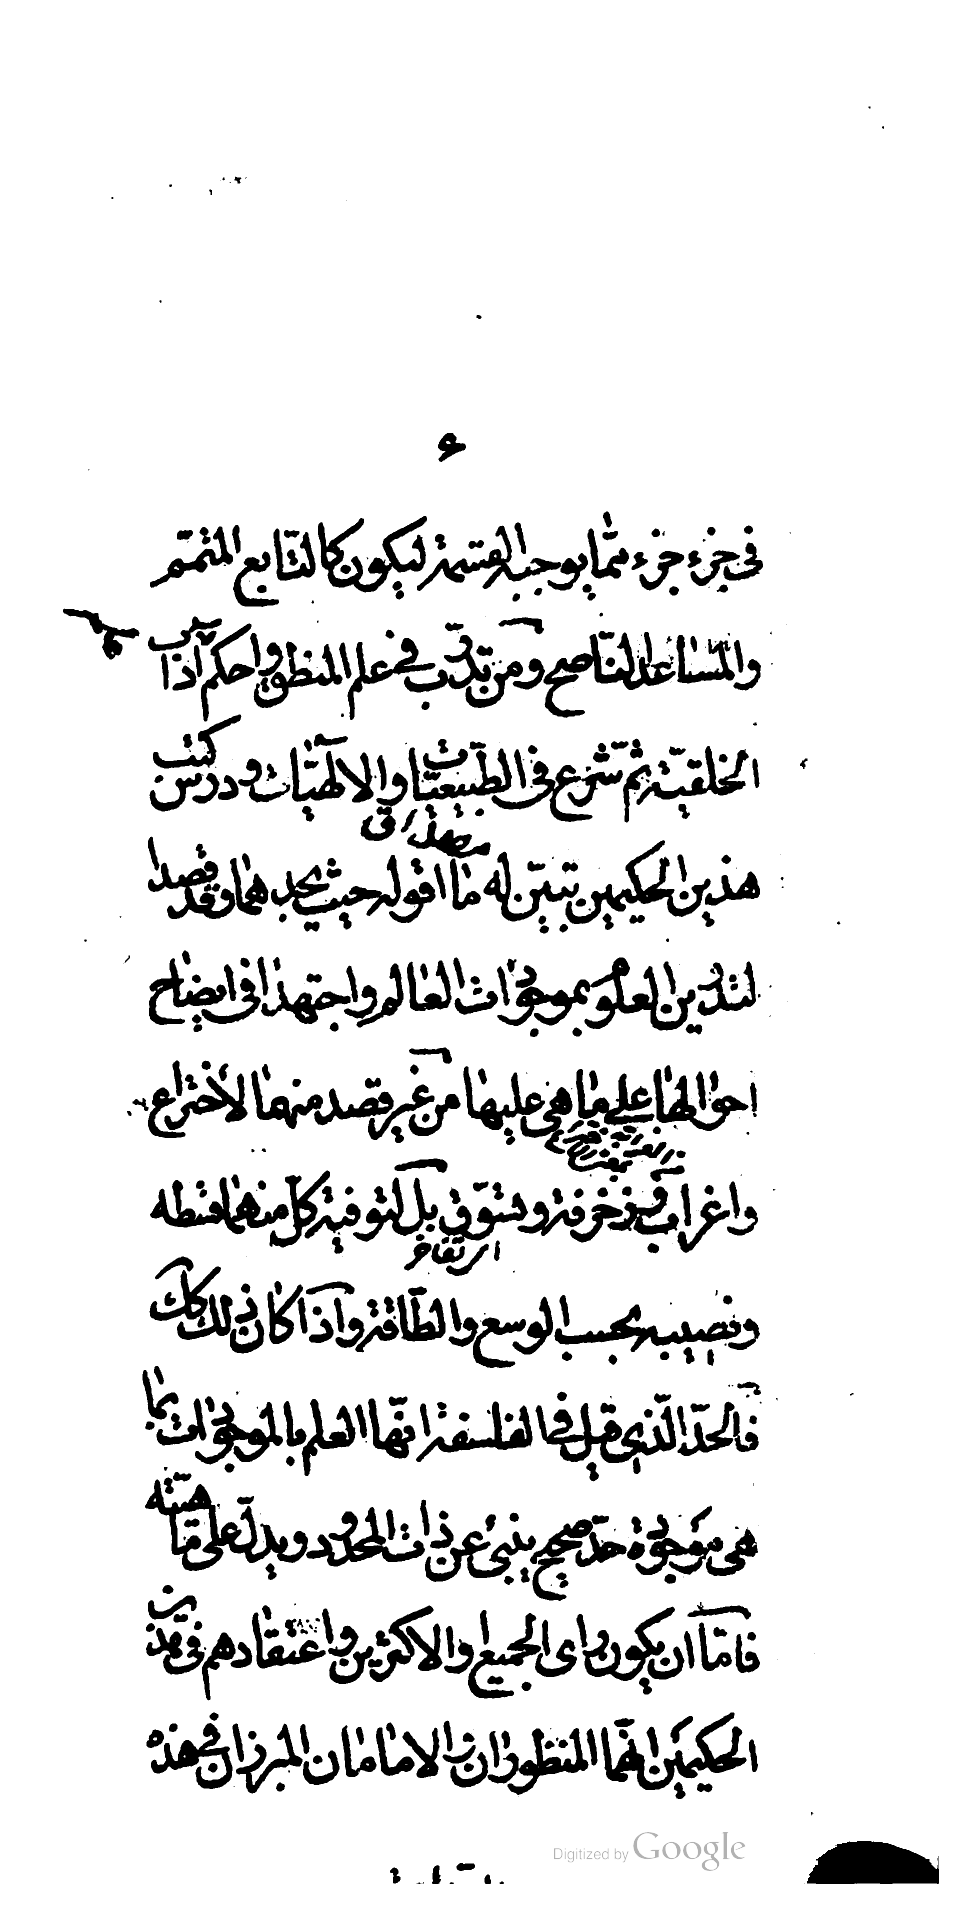 ۶
في جزء جزء مما يوجبه القسمة ليكون كالتابع المتمم
والمساعد الناصح ومن تدرب في علم المنطق واحكم آداب
الخلقية ثم شرع في الطبيعيات والالهيات ودرس كتب
هذين الحكيمين تبين له ما اقوله حيث يجدهما وقد قصدا
لتدوين العلوم بموجودات العالم واجتهدا في ايضاح
احوالها على ما هي عليها من غير قصد منهما لاختراع
واغراب وزخرفة وتشوق بل لتوفية كل منهما قسطه
ونصيبه بحسب الوسع والطاقة واذا كان ذلك كك
فالحد الذي قيل في الفلسفة انها العلم بالموجودات بما
هي موجودة حد صحيح ينبئ عن ذات المحدود ويدل على ماهيته
فاما ان يكون راى الجميع او الاكثرين واعتقادهم في هذين
الحكيمين انهما المنظوران والامامان المبرزان في هذه
Digitized by Google